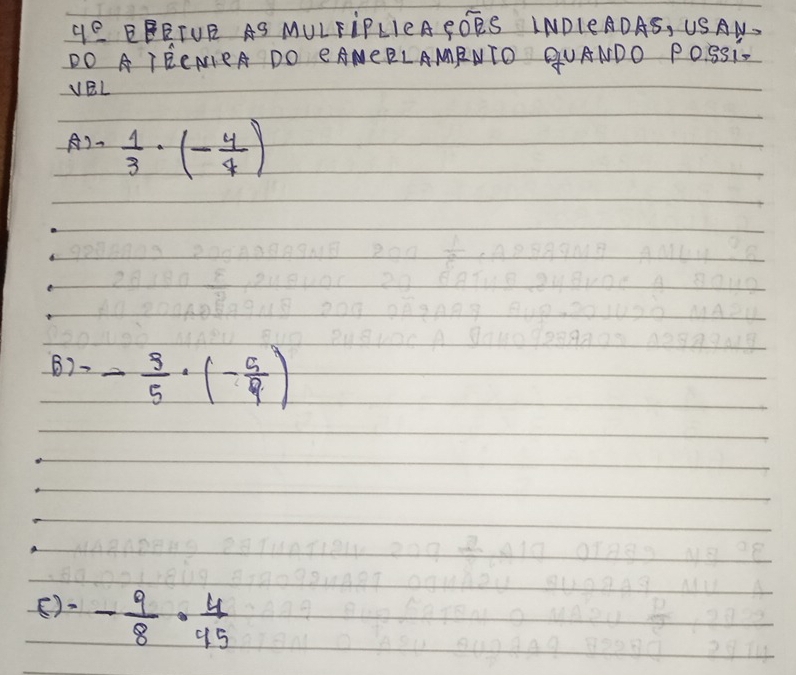 4º EFETUE AS MULTIPLICAÇÕES INDICADAS, USAN-
DO A TÉCNICA DO CANCELAMENTO QUANDO POSSÍ-
VEL
A)- 1/3 · (- 4/4)
B)- - 3/5 · (- 5/9)
C)- - 9/8 · 4/45